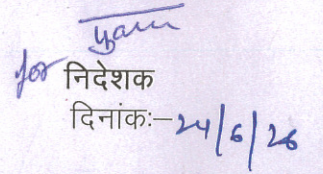 for निदेशक
दिनांकः—24/6/26